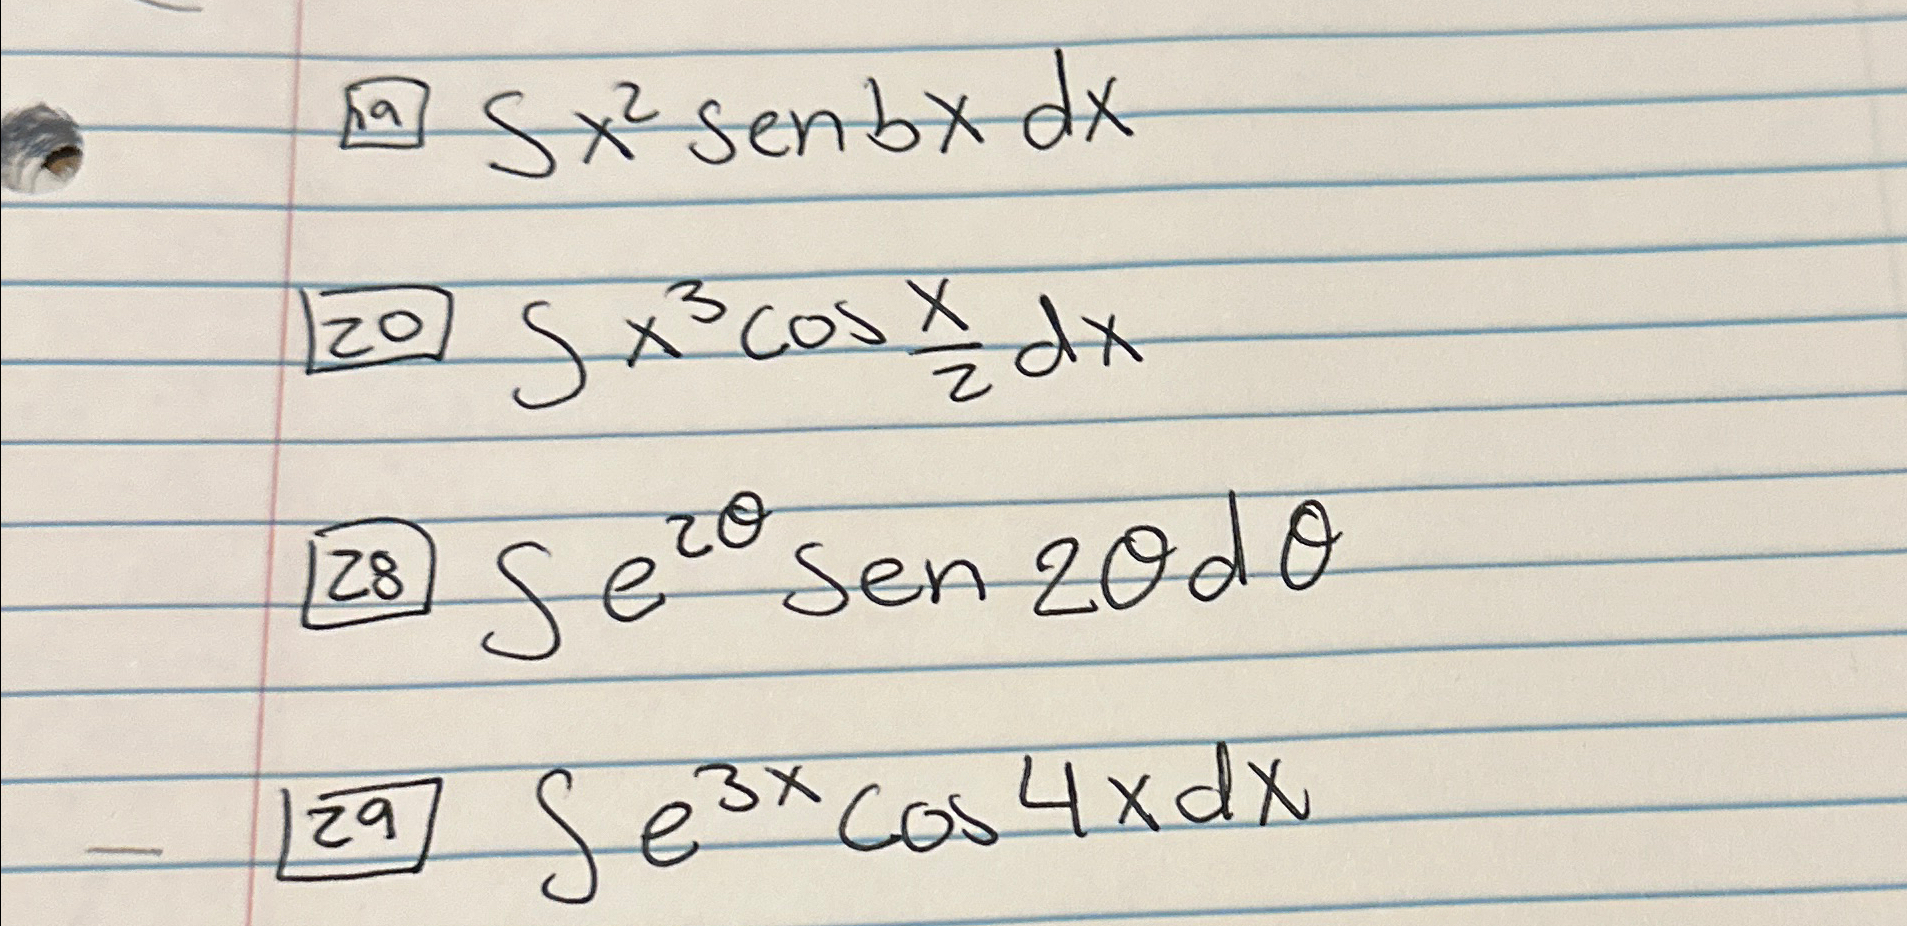 19 ∫ x² sen bx dx
20 ∫ x³ cos x/2 dx
28 ∫ e^{2θ} sen 2θ dθ
29 ∫ e^{3x} cos 4x dx